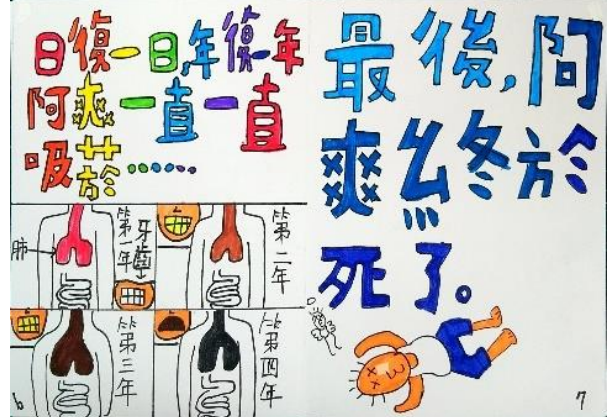 日復一日,年復一年
阿爽一直一直
吸菸……
肺
第一年
牙齒
第二年
第三年
第四年
6
最後,阿
爽終於
死了。
7